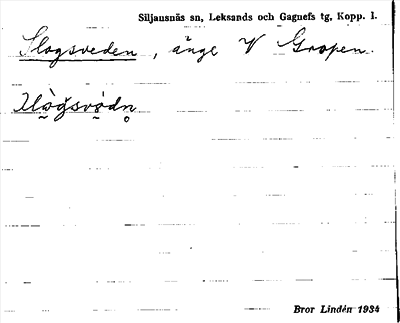 Siljansnäs sn, Leksands och Gagnefs tg, Kopp. l.
Slogsveden, änge V Gropen.
Bror Lindén 1934